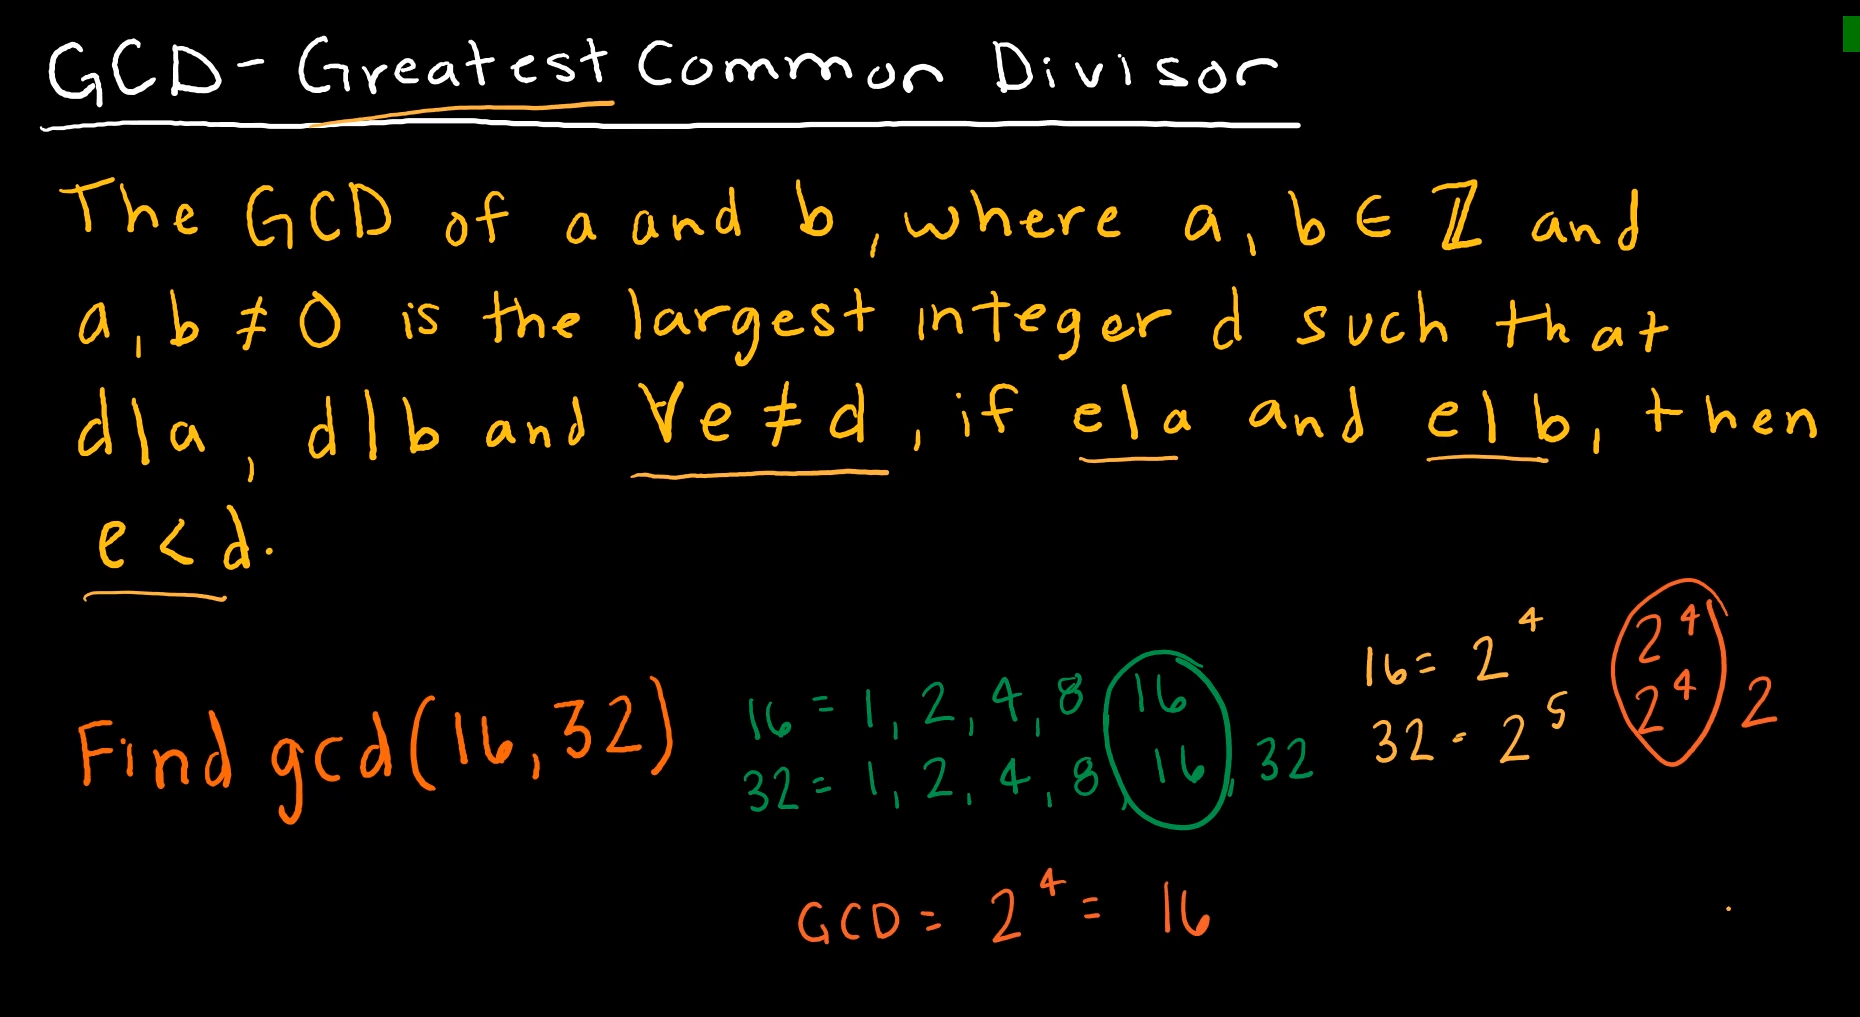 GCD - Greatest Common Divisor
The GCD of a and b, where a, b ∈ ℤ and
a, b ≠ 0 is the largest integer d such that
d|a, d|b and ∀e ≠ d, if e|a and e|b, then
e < d.
Find gcd(16, 32)
16 = 1, 2, 4, 8 16
32 = 1, 2, 4, 8, 16, 32
16 = 2⁴
32 - 2⁵
2⁴
2⁴ 2
GCD = 2⁴ = 16